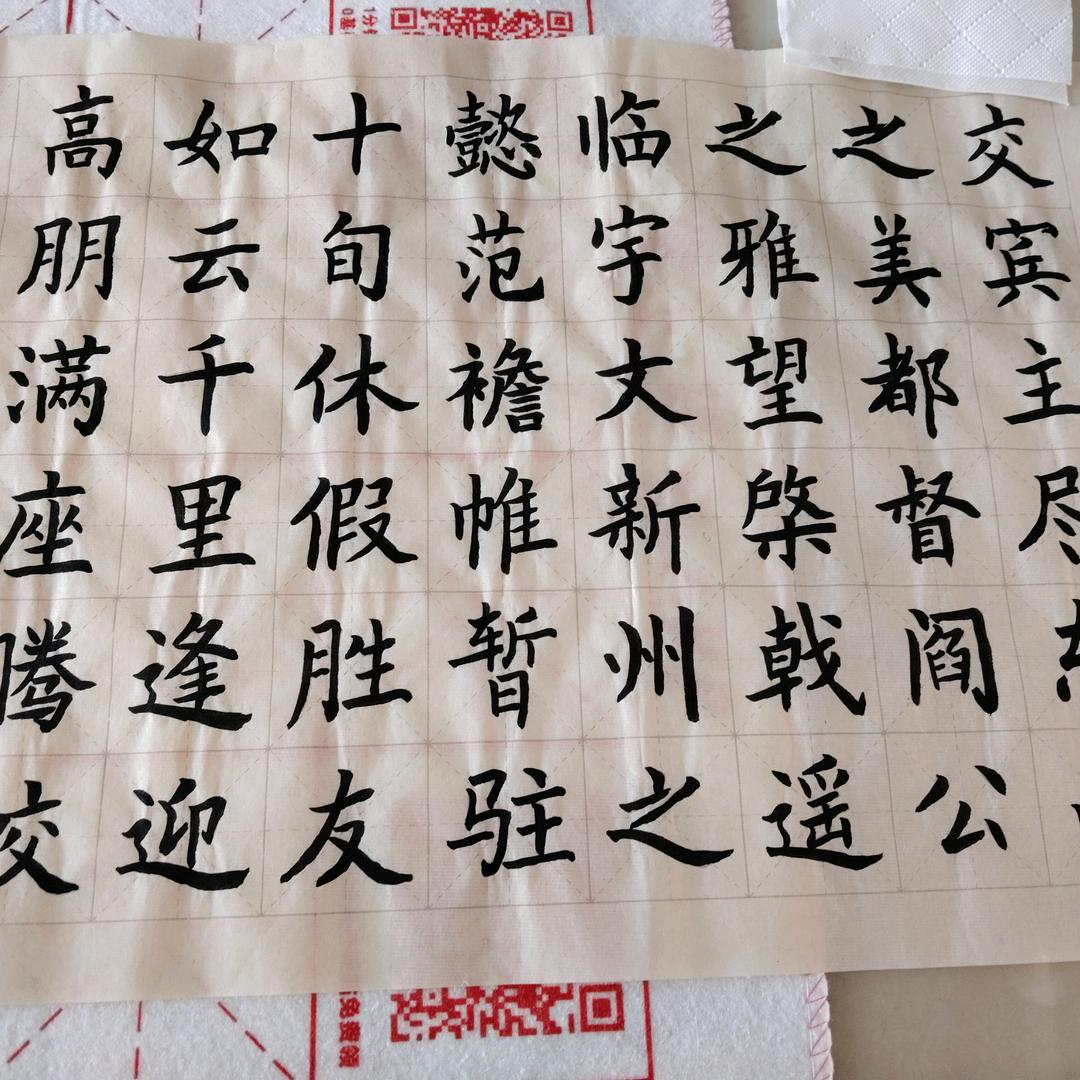 交宾主尽
之美都督阎公
之雅望棨戟遥
临宇文新州之
懿范襜帷暂驻
十旬休假胜友
如云千里逢迎
高朋满座腾
免费领